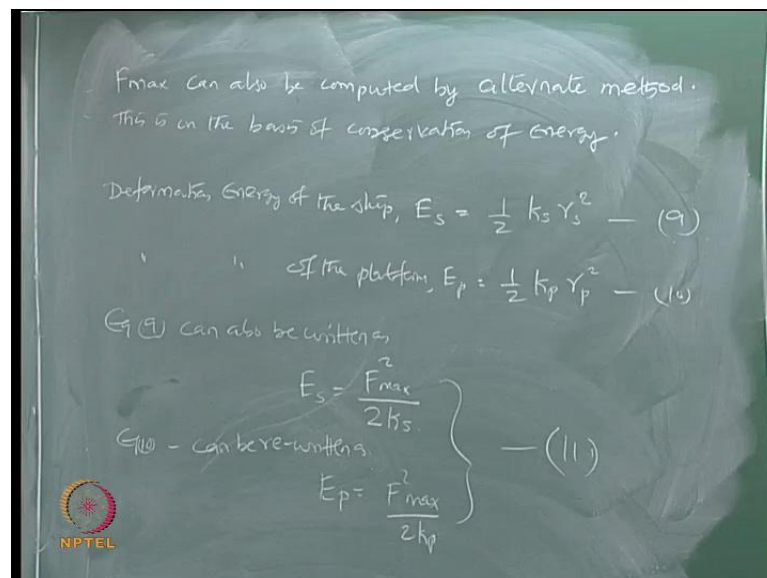 Fmax can also be computed by alternate method.
This is on the basis of conservation of Energy.
Deformation Energy of the ship, E_s = 1/2 k_s r_s^2 — (9)
" " of the platform, E_p = 1/2 k_p r_p^2 — (10)
Eq (9) can also be written as
E_s = F_max^2 / 2k_s
Eq (10) - can be re-written as — (11)
E_p = F_max^2 / 2k_p
NPTEL